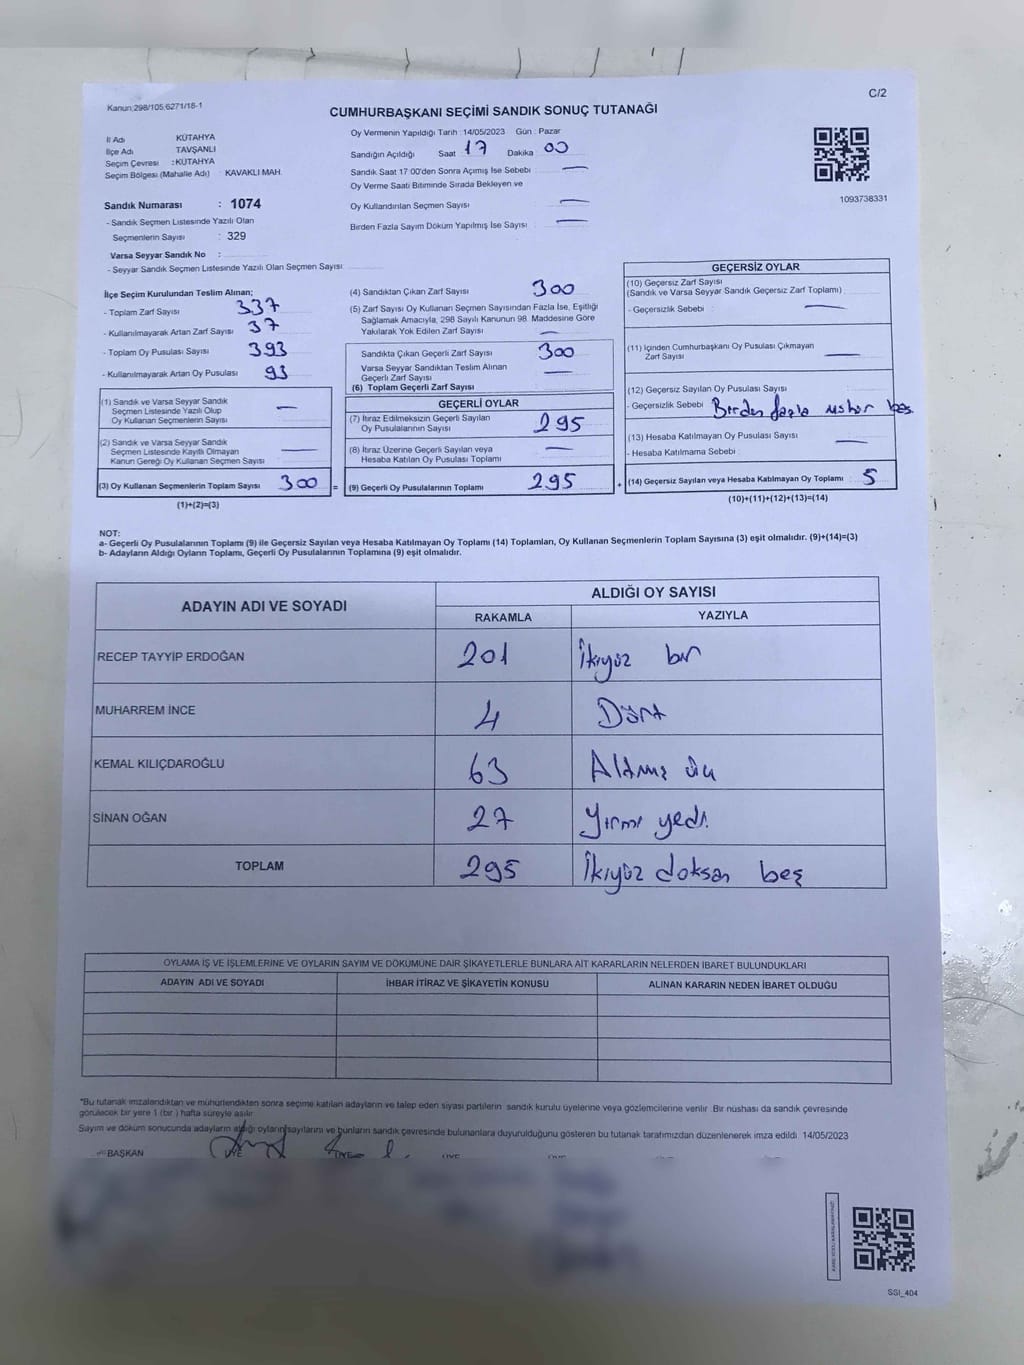 Kanun:298/105,6271/18-1
C/2
CUMHURBAŞKANI SEÇİMİ SANDIK SONUÇ TUTANAĞI
İl Adı KÜTAHYA
İlçe Adı TAVŞANLI
Seçim Çevresi :KÜTAHYA
Seçim Bölgesi (Mahalle Adı) : KAVAKLI MAH.
Sandık Numarası : 1074
- Sandık Seçmen Listesinde Yazılı Olan
Seçmenlerin Sayısı : 329
Varsa Seyyar Sandık No :
- Seyyar Sandık Seçmen Listesinde Yazılı Olan Seçmen Sayısı:
Oy Vermenin Yapıldığı Tarih : 14/05/2023 Gün : Pazar
Sandığın Açıldığı Saat 17 Dakika 00
Sandık Saat 17:00'den Sonra Açımış İse Sebebi : —
Oy Verme Saati Bitiminde Sırada Bekleyen ve
Oy Kullandırılan Seçmen Sayısı —
Birden Fazla Sayım Döküm Yapılmış İse Sayısı —
1093738331
İlçe Seçim Kurulundan Teslim Alınan;
- Toplam Zarf Sayısı 337
- Kullanılmayarak Artan Zarf Sayısı 37
- Toplam Oy Pusulası Sayısı 393
- Kullanılmayarak Artan Oy Pusulası 93
(1) Sandık ve Varsa Seyyar Sandık
Seçmen Listesinde Yazılı Olup
Oy Kullanan Seçmenlerin Sayısı —
(2) Sandık ve Varsa Seyyar Sandık
Seçmen Listesinde Kayıtlı Olmayan
Kanun Gereği Oy Kullanan Seçmen Sayısı —
(3) Oy Kullanan Seçmenlerin Toplam Sayısı 300
(1)+(2)=(3)
(4) Sandıktan Çıkan Zarf Sayısı 300
(5) Zarf Sayısı Oy Kullanan Seçmen Sayısından Fazla İse, Eşitliği
Sağlamak Amacıyla, 298 Sayılı Kanunun 98. Maddesine Göre
Yakılarak Yok Edilen Zarf Sayısı —
Sandıkta Çıkan Geçerli Zarf Sayısı 300
Varsa Seyyar Sandıktan Teslim Alınan
Geçerli Zarf Sayısı —
(6) Toplam Geçerli Zarf Sayısı
GEÇERLİ OYLAR
(7) İtiraz Edilmeksizin Geçerli Sayılan
Oy Pusulalarının Sayısı 295
(8) İtiraz Üzerine Geçerli Sayılan veya
Hesaba Katılan Oy Pusulası Toplamı —
= (9) Geçerli Oy Pusulalarının Toplamı 295
GEÇERSİZ OYLAR
(10) Geçersiz Zarf Sayısı
(Sandık ve Varsa Seyyar Sandık Geçersiz Zarf Toplamı)
- Geçersizlik Sebebi : —
(11) İçinden Cumhurbaşkanı Oy Pusulası Çıkmayan
Zarf Sayısı —
(12) Geçersiz Sayılan Oy Pusulası Sayısı
- Geçersizlik Sebebi Birden fazla
(13) Hesaba Katılmayan Oy Pusulası Sayısı —
- Hesaba Katılmama Sebebi :
+ (14) Geçersiz Sayılan veya Hesaba Katılmayan Oy Toplamı : 5
(10)+(11)+(12)+(13)=(14)
NOT:
a- Geçerli Oy Pusulalarının Toplamı (9) ile Geçersiz Sayılan veya Hesaba Katılmayan Oy Toplamı (14) Toplamları, Oy Kullanan Seçmenlerin Toplam Sayısına (3) eşit olmalıdır. (9)+(14)=(3)
b- Adayların Aldığı Oyların Toplamı, Geçerli Oy Pusulalarının Toplamına (9) eşit olmalıdır.
ADAYIN ADI VE SOYADI
ALDIĞI OY SAYISI
RAKAMLA YAZIYLA
RECEP TAYYİP ERDOĞAN 201 İkiyüz bir
MUHARREM İNCE 4 Dört
KEMAL KILIÇDAROĞLU 63 Altmış üç
SİNAN OĞAN 27 Yirmi yedi
TOPLAM 295 İkiyüz doksan beş
OYLAMA İŞ VE İŞLEMLERİNE VE OYLARIN SAYIM VE DÖKÜMÜNE DAİR ŞİKAYETLERLE BUNLARA AİT KARARLARIN NELERDEN İBARET BULUNDUKLARI
ADAYIN ADI VE SOYADI İHBAR İTİRAZ VE ŞİKAYETİN KONUSU ALINAN KARARIN NEDEN İBARET OLDUĞU
*Bu tutanak imzalandıktan ve mühürlendikten sonra seçime katılan adayların ve talep eden siyasi partilerin sandık kurulu üyelerine veya gözlemcilerine verilir. Bir nüshası da sandık çevresinde
görülecek bir yere 1 (bir ) hafta süreyle asılır
Sayım ve döküm sonucunda adayların aldığı oyların sayılarını ve bunların sandık çevresinde bulunanlara duyurulduğunu gösteren bu tutanak tarafımızdan düzenlenerek imza edildi 14/05/2023
BAŞKAN ÜYE ÜYE ÜYE
SSI_404